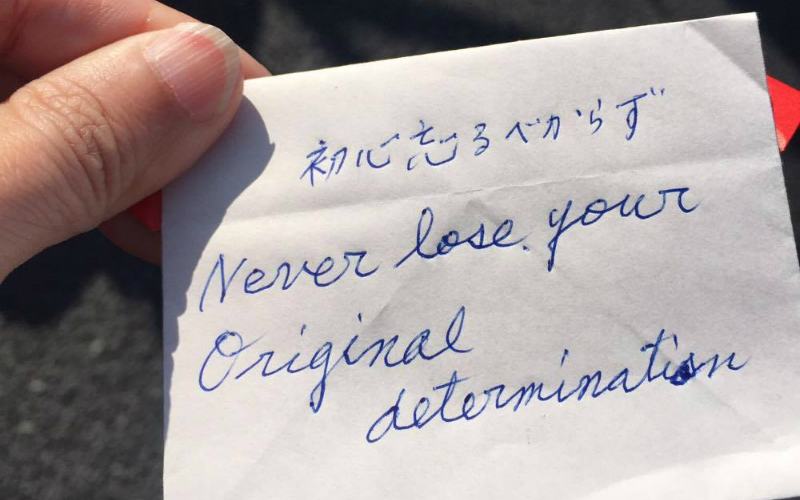 初心忘るべからず
Never lose your
Original
determination